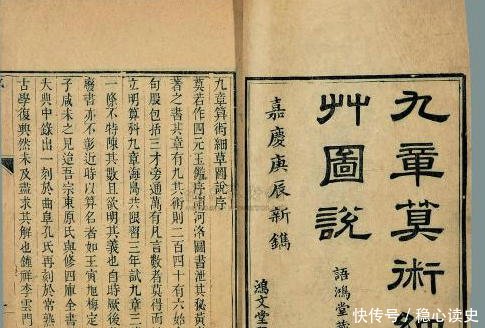 九章算術
艸圖說
嘉慶庚辰新鐫
語鴻堂
鴻文堂
九章算術細草圖說序
莫若作四元玉鑑序謂河洛圖書泄其秘黃
著之書其章有九其術則二百四十有六始
句股包括三才旁通萬有凡言數者莫得而
立明算科九章海島共限習三年試九章三
一條不特陳其數且欲明其義也自時厥後
廢書亦不彰近時以算名者如王寅旭梅定
子咸未之見迨吾宗東原氏與修四庫全書
大典中錄出一刻於曲阜孔氏再刻於常熟
古學復興然未及盡求其解也鍾祥李雲門
快传号 / 稳心读史